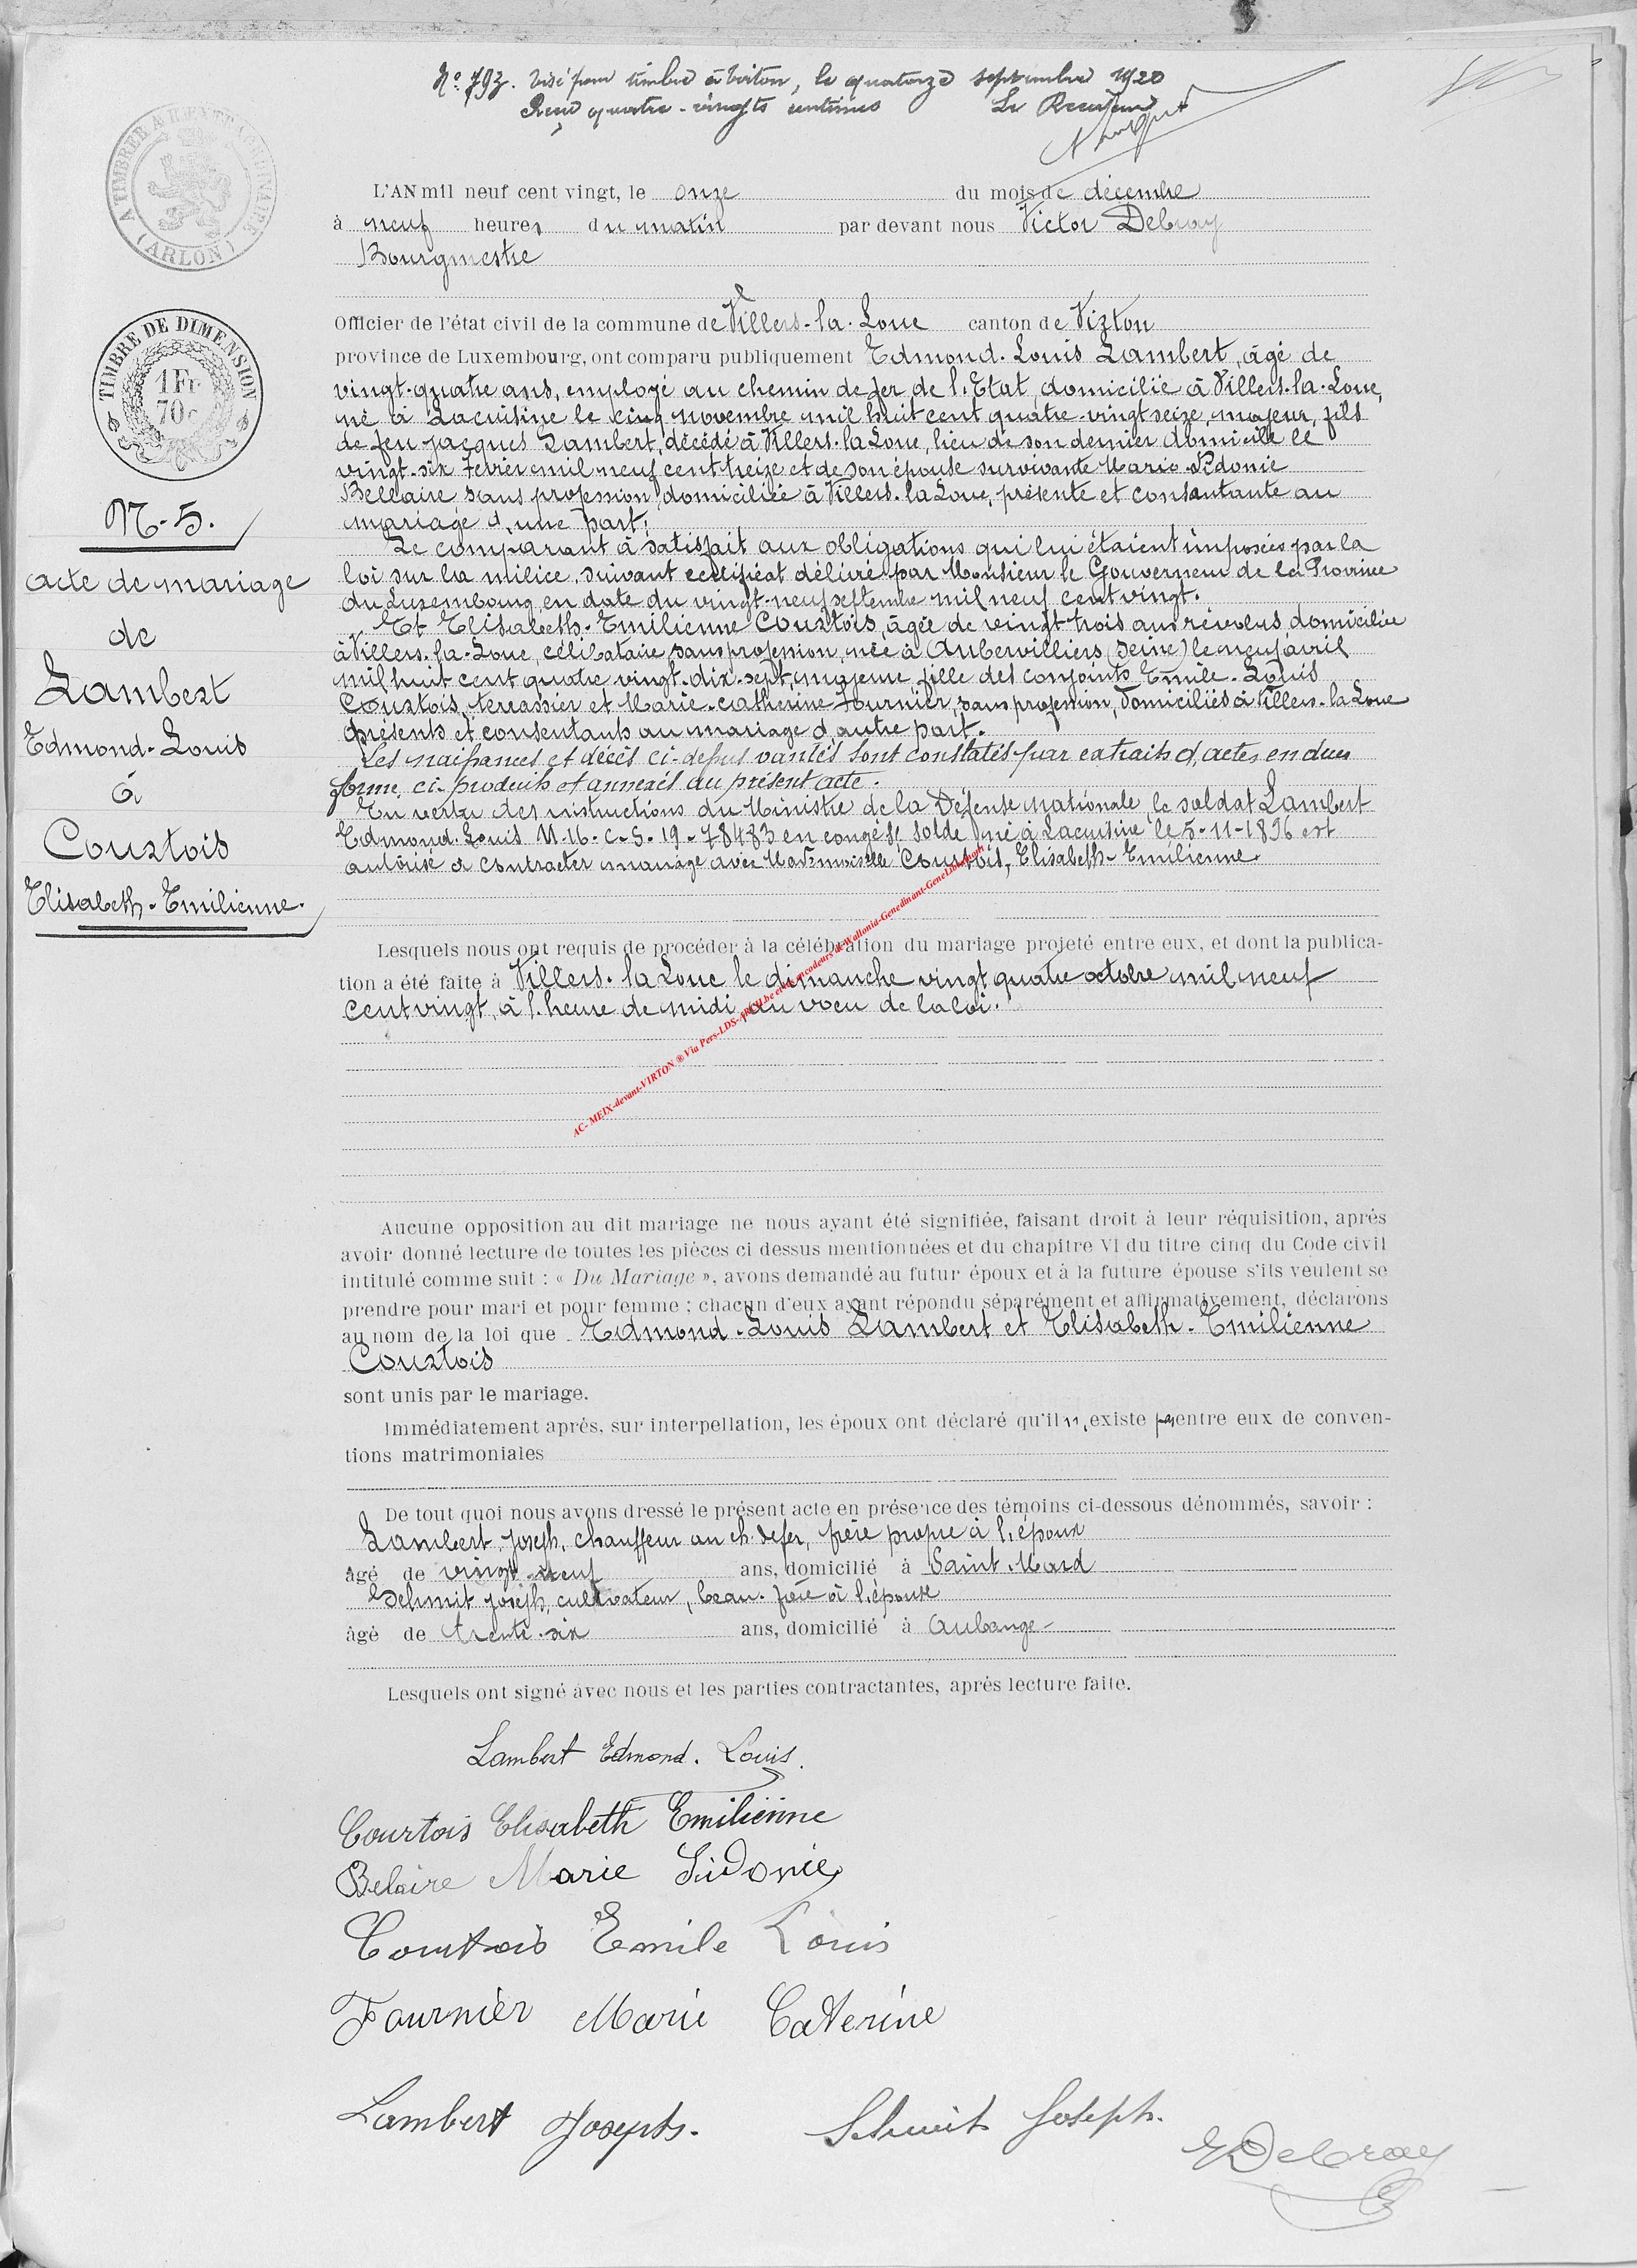 N° 793. Visé pour timbre à Virton, le quatorze septembre 1920
Reçu quatre-vingts centimes Le Receveur
A TIMBRER A L'EXTRAORDINAIRE
(ARLON)
TIMBRE DE DIMENSION
1 Fr
70 c
N-5.
acte de mariage
de
Lambert
Edmond-Louis
à
Courtois
Elisabeth-Emilienne.
L'AN mil neuf cent vingt, le onze du mois de décembre
à neuf heures du matin par devant nous Victor Debray
Bourgmestre
Officier de l'état civil de la commune de Villers-la-Loue canton de Virton
province de Luxembourg, ont comparu publiquement Edmond-Louis Lambert, âgé de
vingt-quatre ans, employé au chemin de fer de l'Etat, domicilié à Villers-la-Loue,
né à Lacuisine le cinq novembre mil huit cent quatre-vingt seize, majeur, fils
de feu Jacques Lambert, décédé à Villers-la-Loue, lieu de son dernier domicile le
vingt-six février mil neuf cent treize et de son épouse survivante Marie-Sidonie
Bellaire sans profession domiciliée à Villers-la-Loue, présente et consentante au
mariage d'une part.
Le comparant à satisfait aux obligations qui lui étaient imposées par la
loi sur la milice, suivant certificat délivré par Monsieur le Gouverneur de la Province
du Luxembourg en date du vingt-neuf septembre mil neuf cent vingt.
Et Elisabeth-Emilienne Courtois, âgée de vingt trois ans révolus domiciliée
à Villers-la-Loue, célibataire, sans profession, née à Aubervilliers (Seine) le neuf avril
mil huit cent quatre vingt-dix-sept, majeure fille des conjoints Emile-Louis
Courtois, terrassier et Marie-Catherine Fournier, sans profession, domiciliés à Villers-la-Loue
présents et consentants au mariage d'autre part.
Les naissances et décès ci-dessus vantés sont constatés par extraits d'actes en dues
forme, ci-produits et annexés au présent acte.
En vertu des instructions du Ministre de la Défense nationale, le soldat Lambert
Edmond-Louis M-16-C-S-19-78483 en congé s/ solde, né à Lacuisine le 5-11-1896 est
autorisé à contracter mariage avec Mademoiselle Courtois, Elisabeth-Emilienne.
Lesquels nous ont requis de procéder à la célébration du mariage projeté entre eux, et dont la publica-
tion a été faite à Villers-la-Loue le dimanche vingt quatre octobre mil neuf
cent vingt, à l'heure de midi, au voeu de la loi.
AC- MEIX-devant-VIRTON ® Via Pers-LDS-ARCH.be et les encodeurs de Wallonia-Genedinant-GeneLibramont
Aucune opposition au dit mariage ne nous ayant été signifiée, faisant droit à leur réquisition, après
avoir donné lecture de toutes les pièces ci dessus mentionnées et du chapitre VI du titre cinq du Code civil
intitulé comme suit : « Du Mariage », avons demandé au futur époux et à la future épouse s'ils veulent se
prendre pour mari et pour femme ; chacun d'eux ayant répondu séparément et affirmativement, déclarons
au nom de la loi que Edmond-Louis Lambert et Elisabeth-Emilienne
Courtois
sont unis par le mariage.
Immédiatement après, sur interpellation, les époux ont déclaré qu'il n'existe pas entre eux de conven-
tions matrimoniales
De tout quoi nous avons dressé le présent acte en présence des témoins ci-dessous dénommés, savoir :
Lambert, Joseph, chauffeur au ch. de fer, frère propre à l'époux
âgé de vingt-neuf ans, domicilié à Saint-Mard
Schmit Joseph, cultivateur, beau-frère à l'épouse
âgé de trente-six ans, domicilié à Aubange
Lesquels ont signé avec nous et les parties contractantes, après lecture faite.
Lambert Edmond. Louis.
Courtois Elisabeth Emilienne
Belaire Marie Sidonie
Courtois Emile Louis
Fournier Marie Caterine
Lambert Joseph.
Schmit Joseph.
VDebray